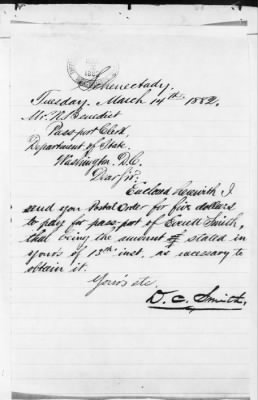 Schenectady.
Tuesday. March 14th 1882.
Mr. N. Benedict
Passport Clerk,
Department of State.
Washington. D.C.
Dear Sir:
Enclosed herewith I
send you Postal Order for five dollars
to pay for passport of Everett Smith,
that being the amount stated in
yours of 13th inst, as necessary to
obtain it.
Yours etc.
D. C. Smith.